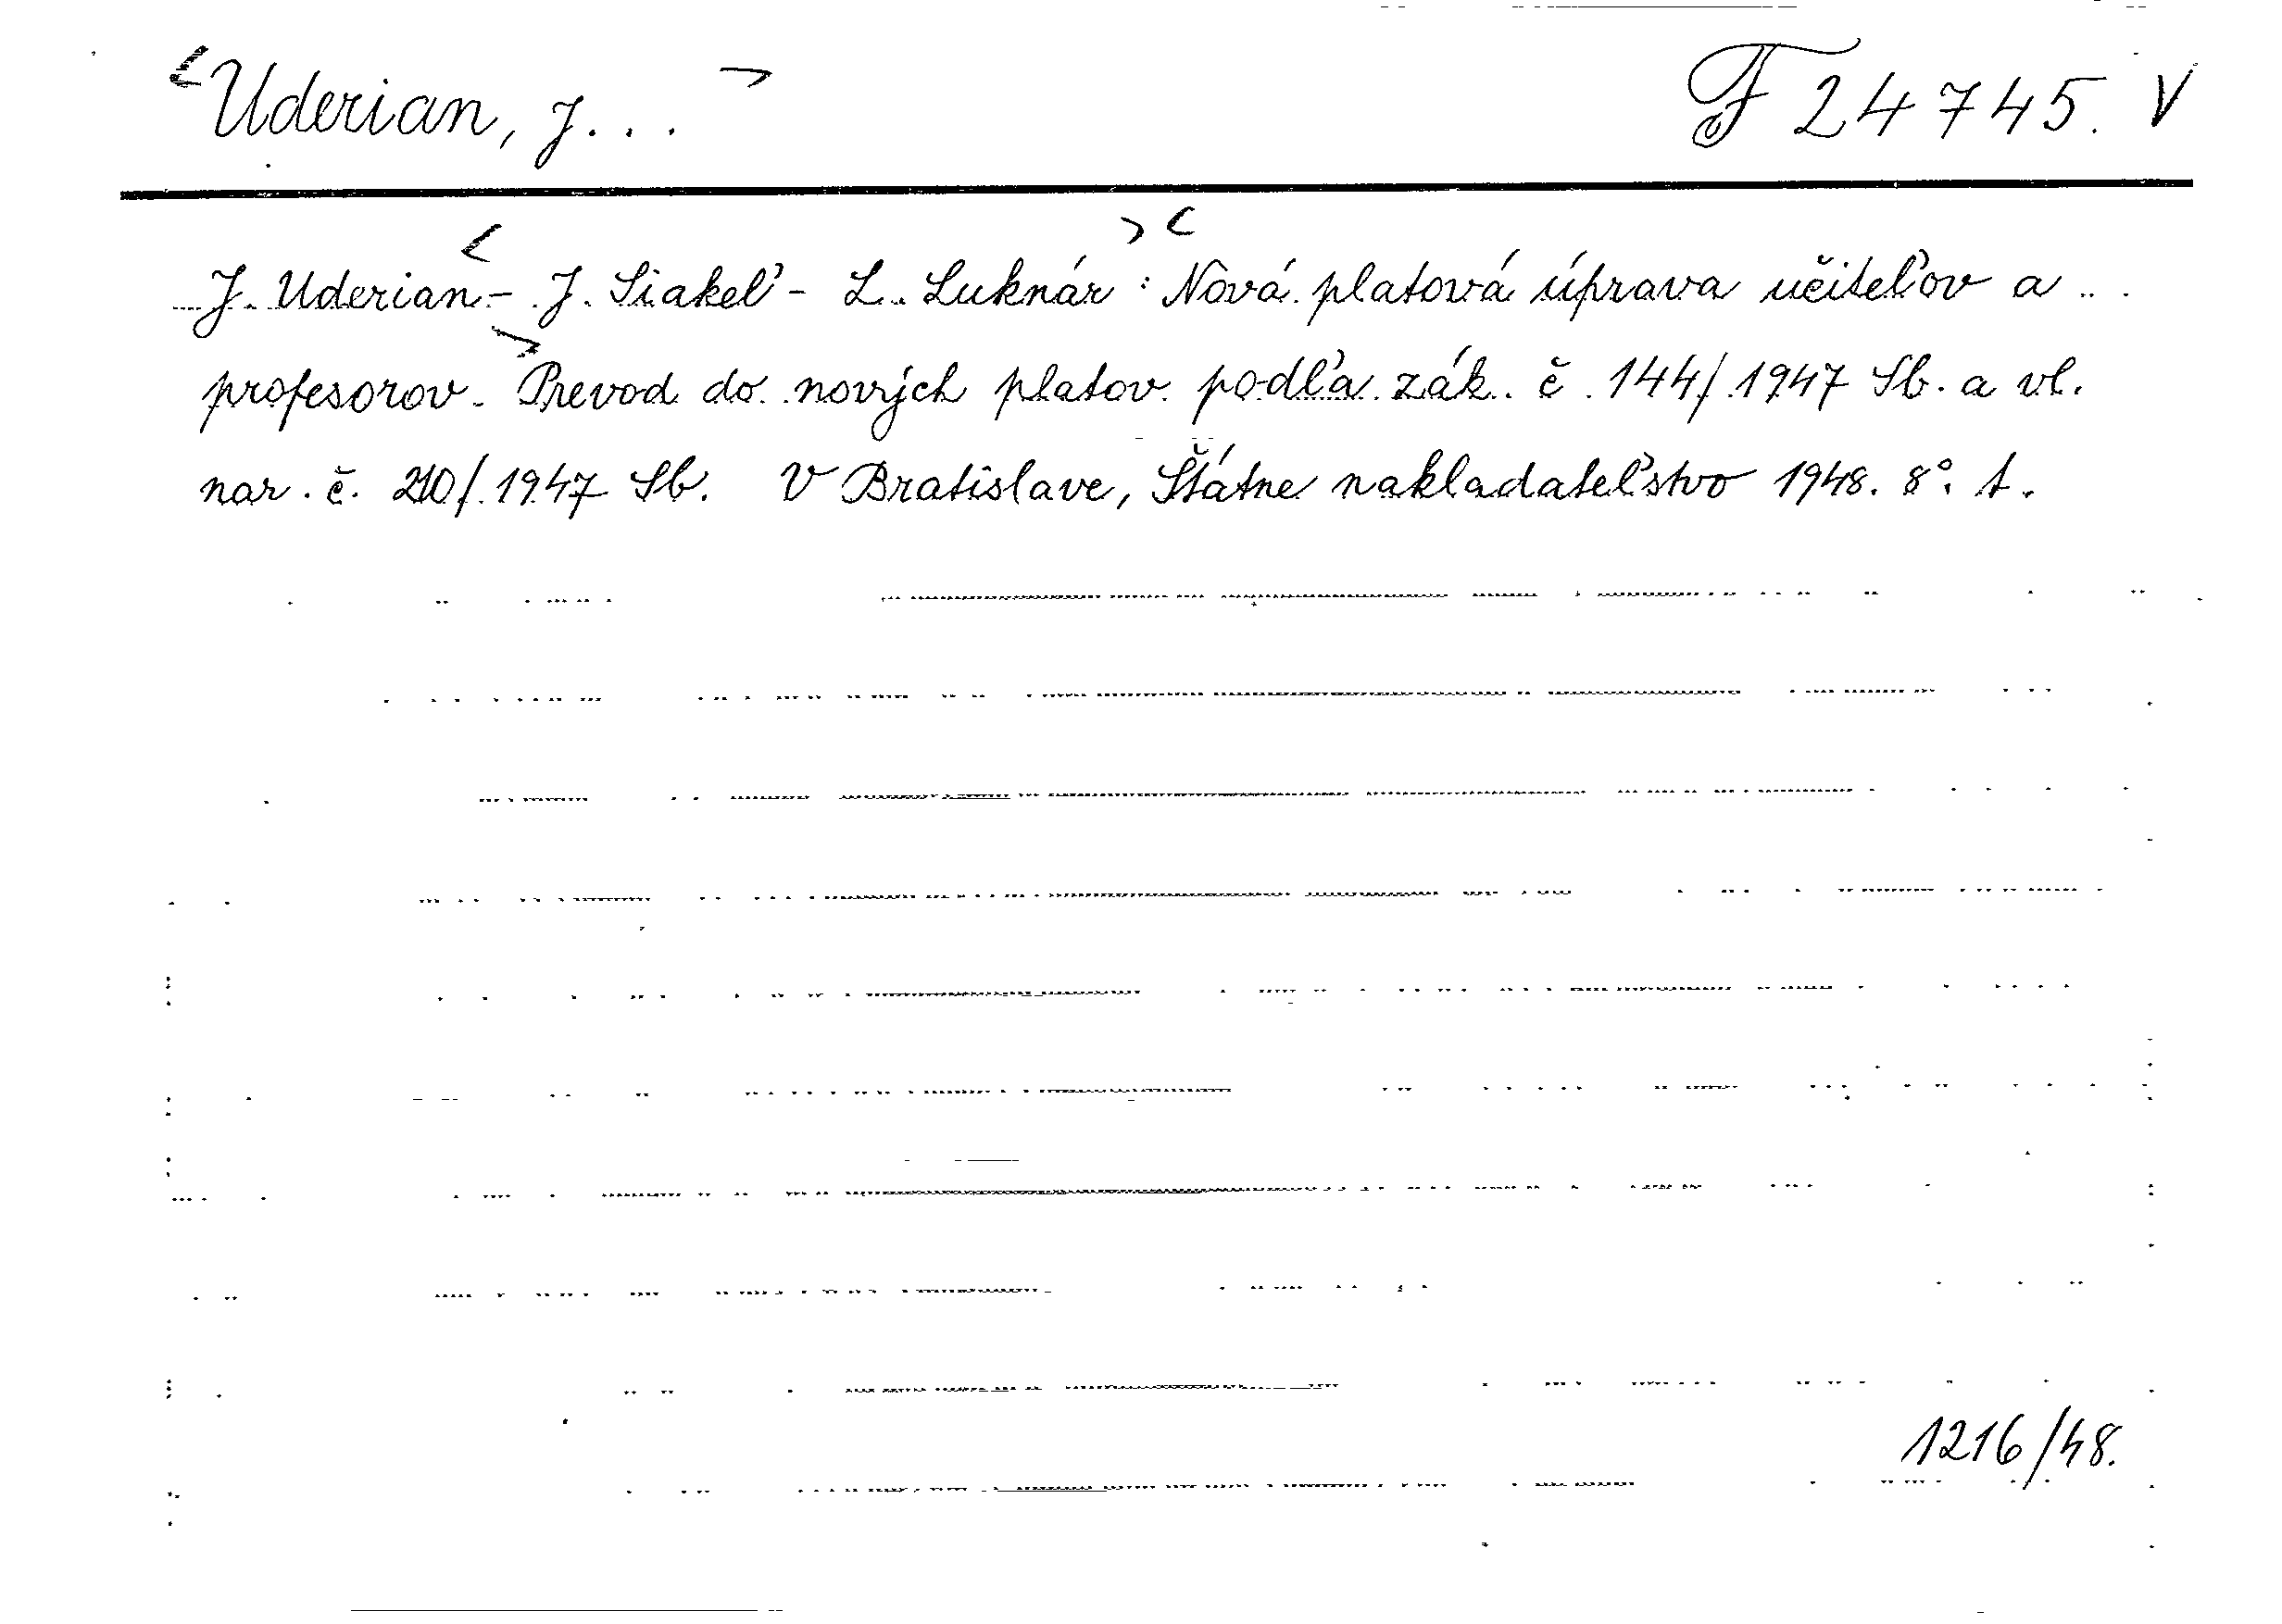 <Uderian, J... > F 24745. V
J. Uderian - < J. Siakeľ - L. Luknár >< : Nová platová úprava učiteľov a
profesorov. > Prevod do nových platov podľa zák. č. 144/1947 Sb. a vl.
nar. č. 210/1947 Sb. V Bratislave, Štátne nakladateľstvo 1948. 8°. 1.
1216/48.